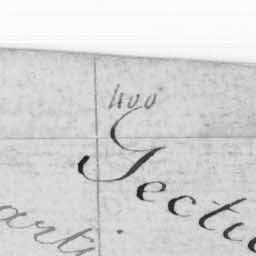 400
Secti
arti